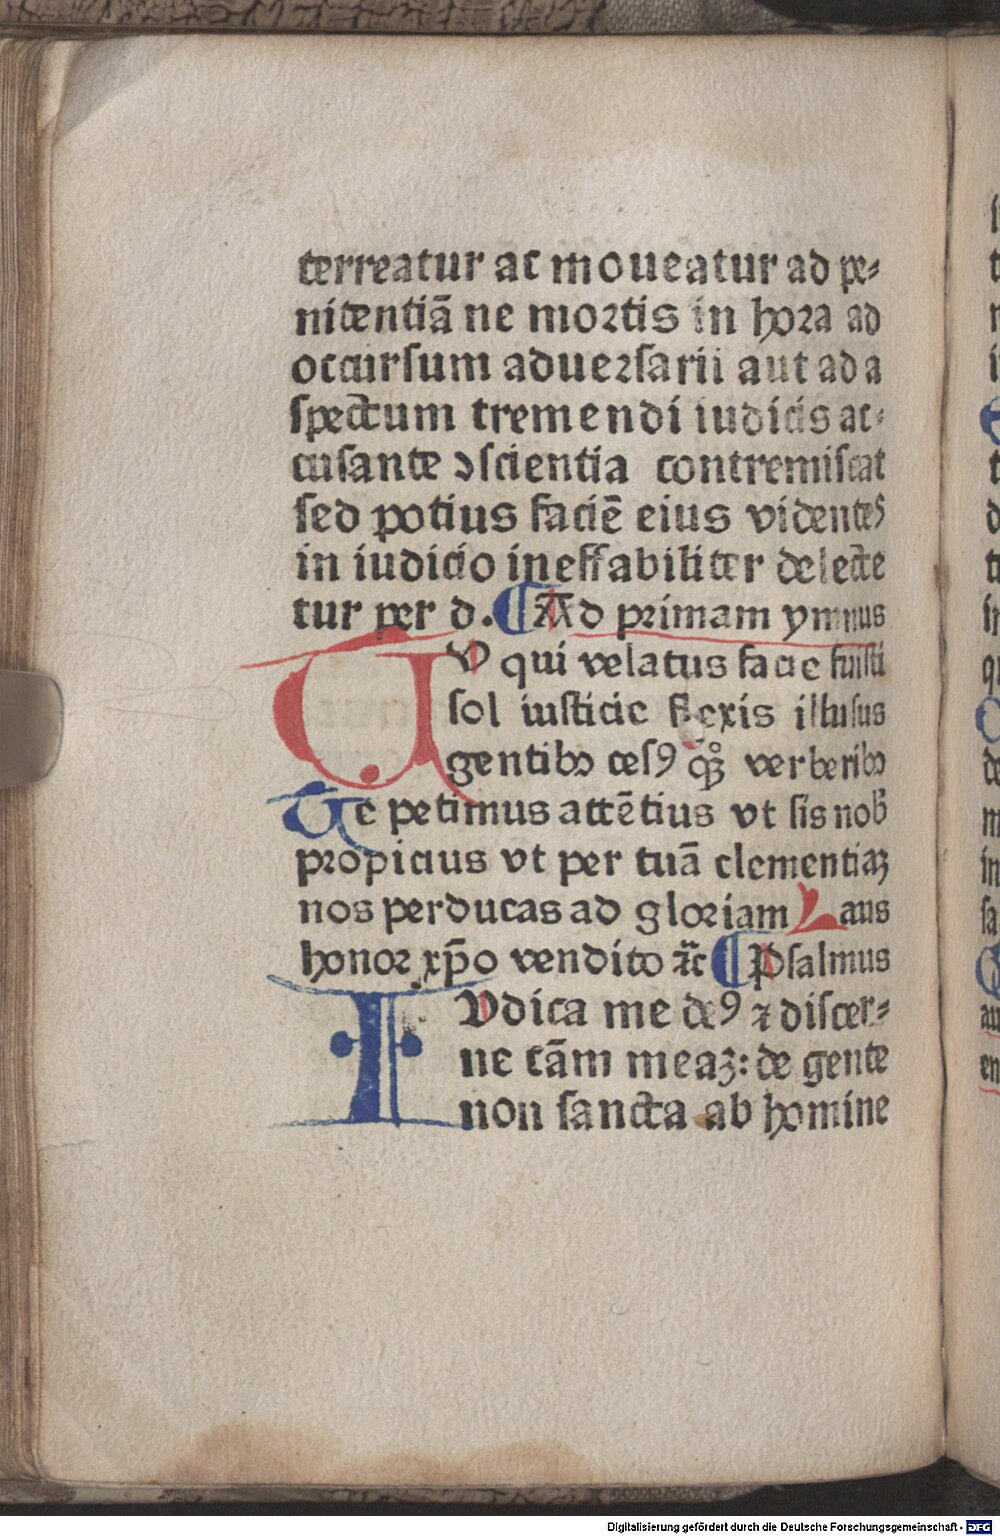 terreatur ac moueatur ad pe⸗
nitentiā ne mortis in hora ad
occursum aduersarii aut ad a
spectum tremendi iudicis ac⸗
cusante ↄscientia contremiscat
sed potius faciē eius videntes
in iudicio ineffabiliter delecte
tur per d. ¶ Ad primam ymnus
TV qui velatus facie fuisti
sol iusticie flexis illusus
gentibꝯ cesꝰ qͦꝫ verberibꝯ
Te petimus attētius vt sis nob̄
propicius vt per tuā clementiaꝫ
nos perducas ad gloriam Laus
honor xp̄o vendito ⁊c̄ ¶ Psalmus
IVdica me deꝰ ⁊ discer⸗
ne cām meaꝫ: de gente
non sancta ab homine
Digitalisierung gefördert durch die Deutsche Forschungsgemeinschaft - DFG